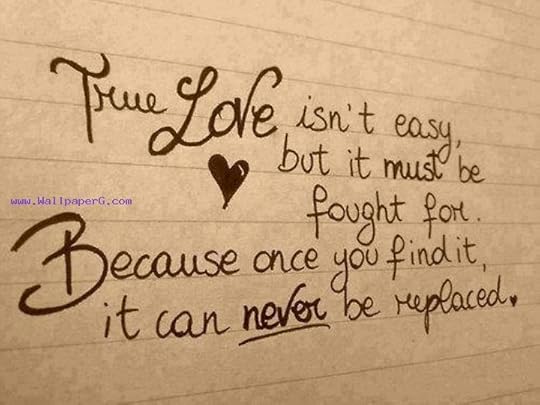 True Love isn't easy,
but it must be
fought for.
www.WallpaperG.com
Because once you find it,
it can never be replaced.